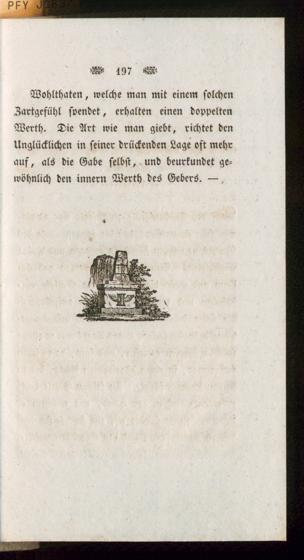 PFY
197
Wohlthaten, welche man mit einem solchen
Zartgefühl spendet, erhalten einen doppelten
Werth. Die Art wie man giebt, richtet den
Unglücklichen in seiner drückenden Lage oft mehr
auf, als die Gabe selbst, und beurkundet ge-
wöhnlich den innern Werth des Gebers. —